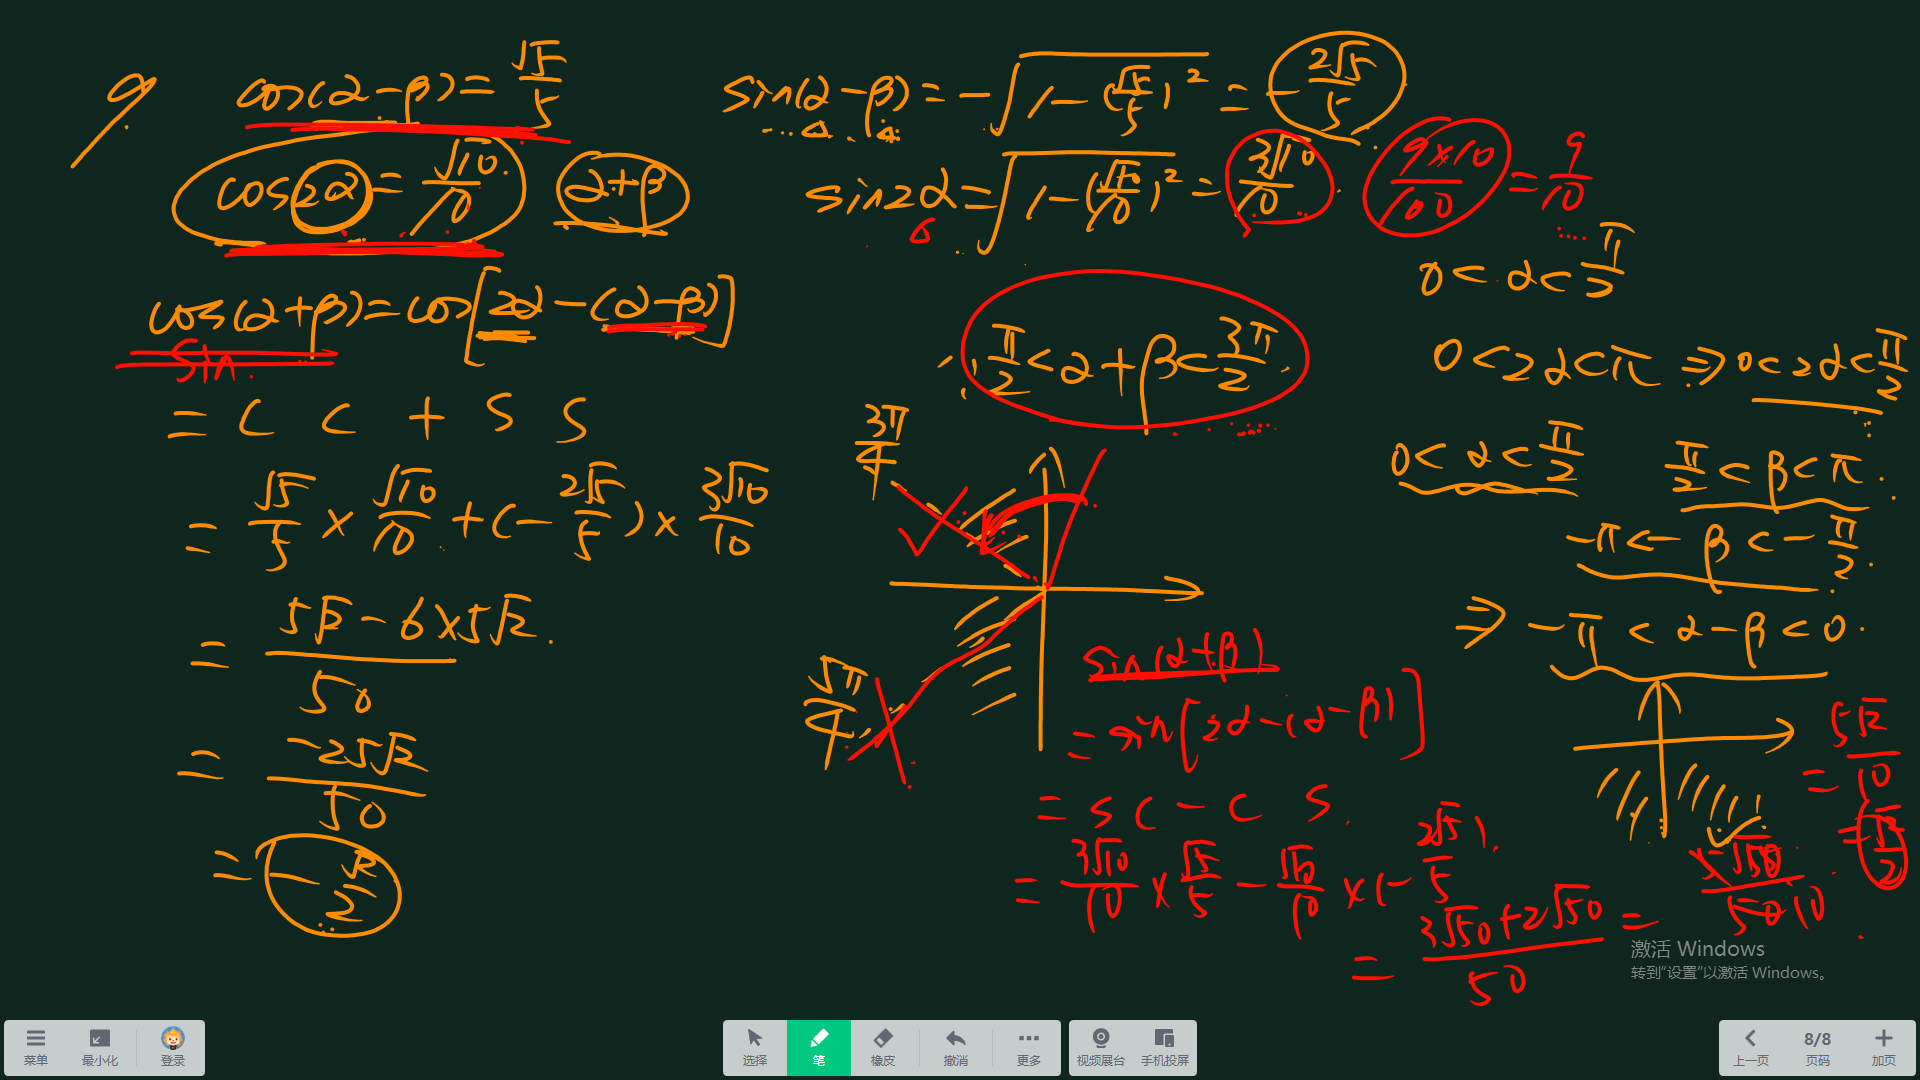 9
cos(α-β)=√5/5
cos2α=√10/10 α+β
cos(α+β)=cos[2α-(α-β)]
sin
= C C + S S
= √5/5 × √10/10 + (-2√5/5) × 3√10/10
= (5√2-6×5√2)/50
= -25√2/50
= -√2/2
sin(α-β)=-√(1-(√5/5)²)=-2√5/5
sin2α=√(1-(√10/10)²)=3√10/10 9×10/100=9/10
0<α<π/2
π/2<α+β<3π/2
0<2α<π ⇒ 0<2α<π/2
0<α<π/2 π/2<β<π
-π<-β<-π/2
⇒ -π<α-β<0
3π/4
5π/4
sin(α+β)
=sin[2α-(α-β)]
= S C - C S
= 3√10/10 × √5/5 - √10/10 × (-2√5/5)
= (3√50+2√50)/50 = 5√50/50 10
= 5√2/10
= √2/2
激活 Windows
转到“设置”以激活 Windows。
菜单 最小化 登录 选择 笔 橡皮 撤消 更多 视频展台 手机投屏 上一页 8/8 页码 加页